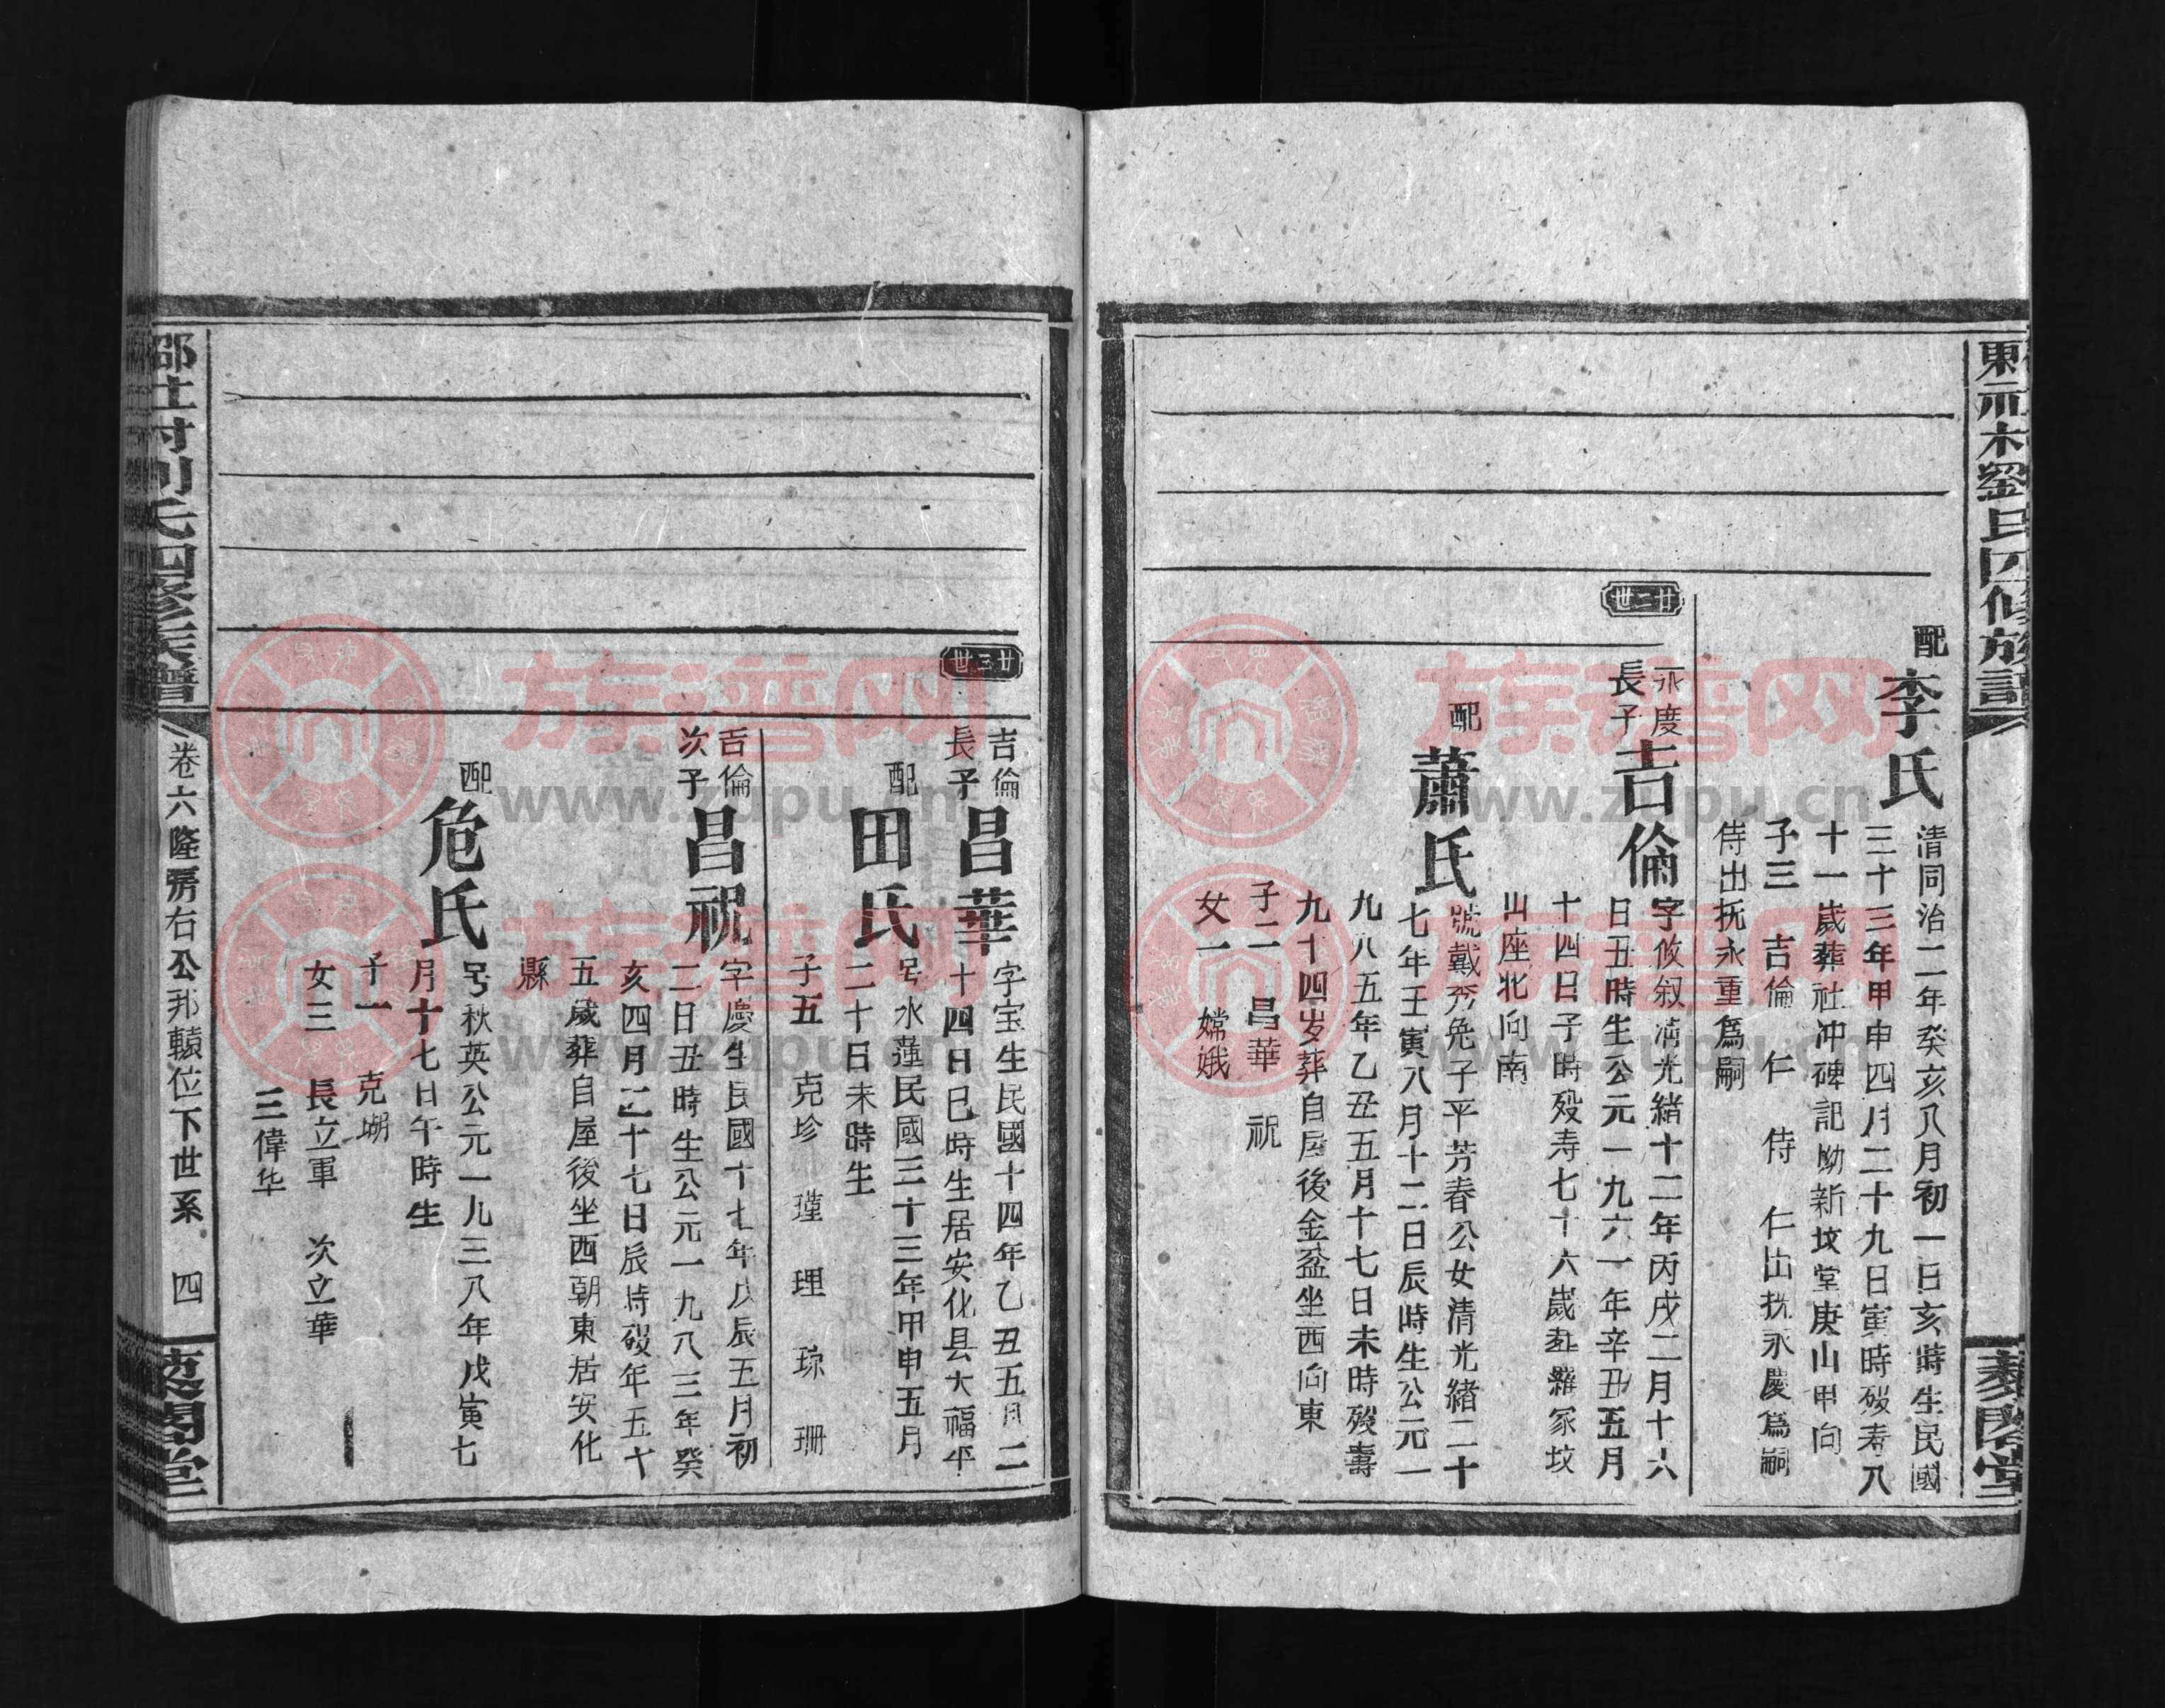 配
李氏
清同治二年癸亥八月初一日亥時生民國
三十三年甲申四月二十九日寅時殁寿八
十一歲葬社冲碑記坳新坟堂庚山甲向
子三 吉倫 仁 侍 仁出抚永慶爲嗣
侍出抚永重爲嗣
廿二世
永慶
長子
吉倫
字攸叙清光緒十二年丙戌二月十六
日丑時生公元一九六一年辛丑五月
十四日子時殁寿七十六歲葬羅家坟
山座北向南
配
蕭氏
號戴秀免子平芳春公女清光緒二十
七年壬寅八月十二日辰時生公元一
九八五年乙丑五月十七日未時殁壽
九十四岁葬自屋後金盆坐西向東
子二 昌華 祝
女一 嫦娥
廿三世
吉倫
長子
昌華
字宝生民國十四年乙丑五月二
十四日巳時生居安化县大福平
配
田氏
号水蓮民國三十三年甲申五月
二十日未時生
子五 克珍 瑾 理 琼 珊
吉倫
次子
昌祝
字慶生民國十七年戊辰五月初
二日丑時生公元一九八三年癸
亥四月二十七日辰時殁年五十
五歲葬自屋後坐西朝東居安化
縣
配
危氏
号秋英公元一九三八年戊寅七
月十七日午時生
子一 克瑚
女三 長立軍 次立華
三偉华
卷六隆房右公邦轅位下世系 四
族谱网
www.zupu.cn
族谱网
www.zupu.cn
族谱网
www.zupu.cn
族谱网
www.zupu.cn